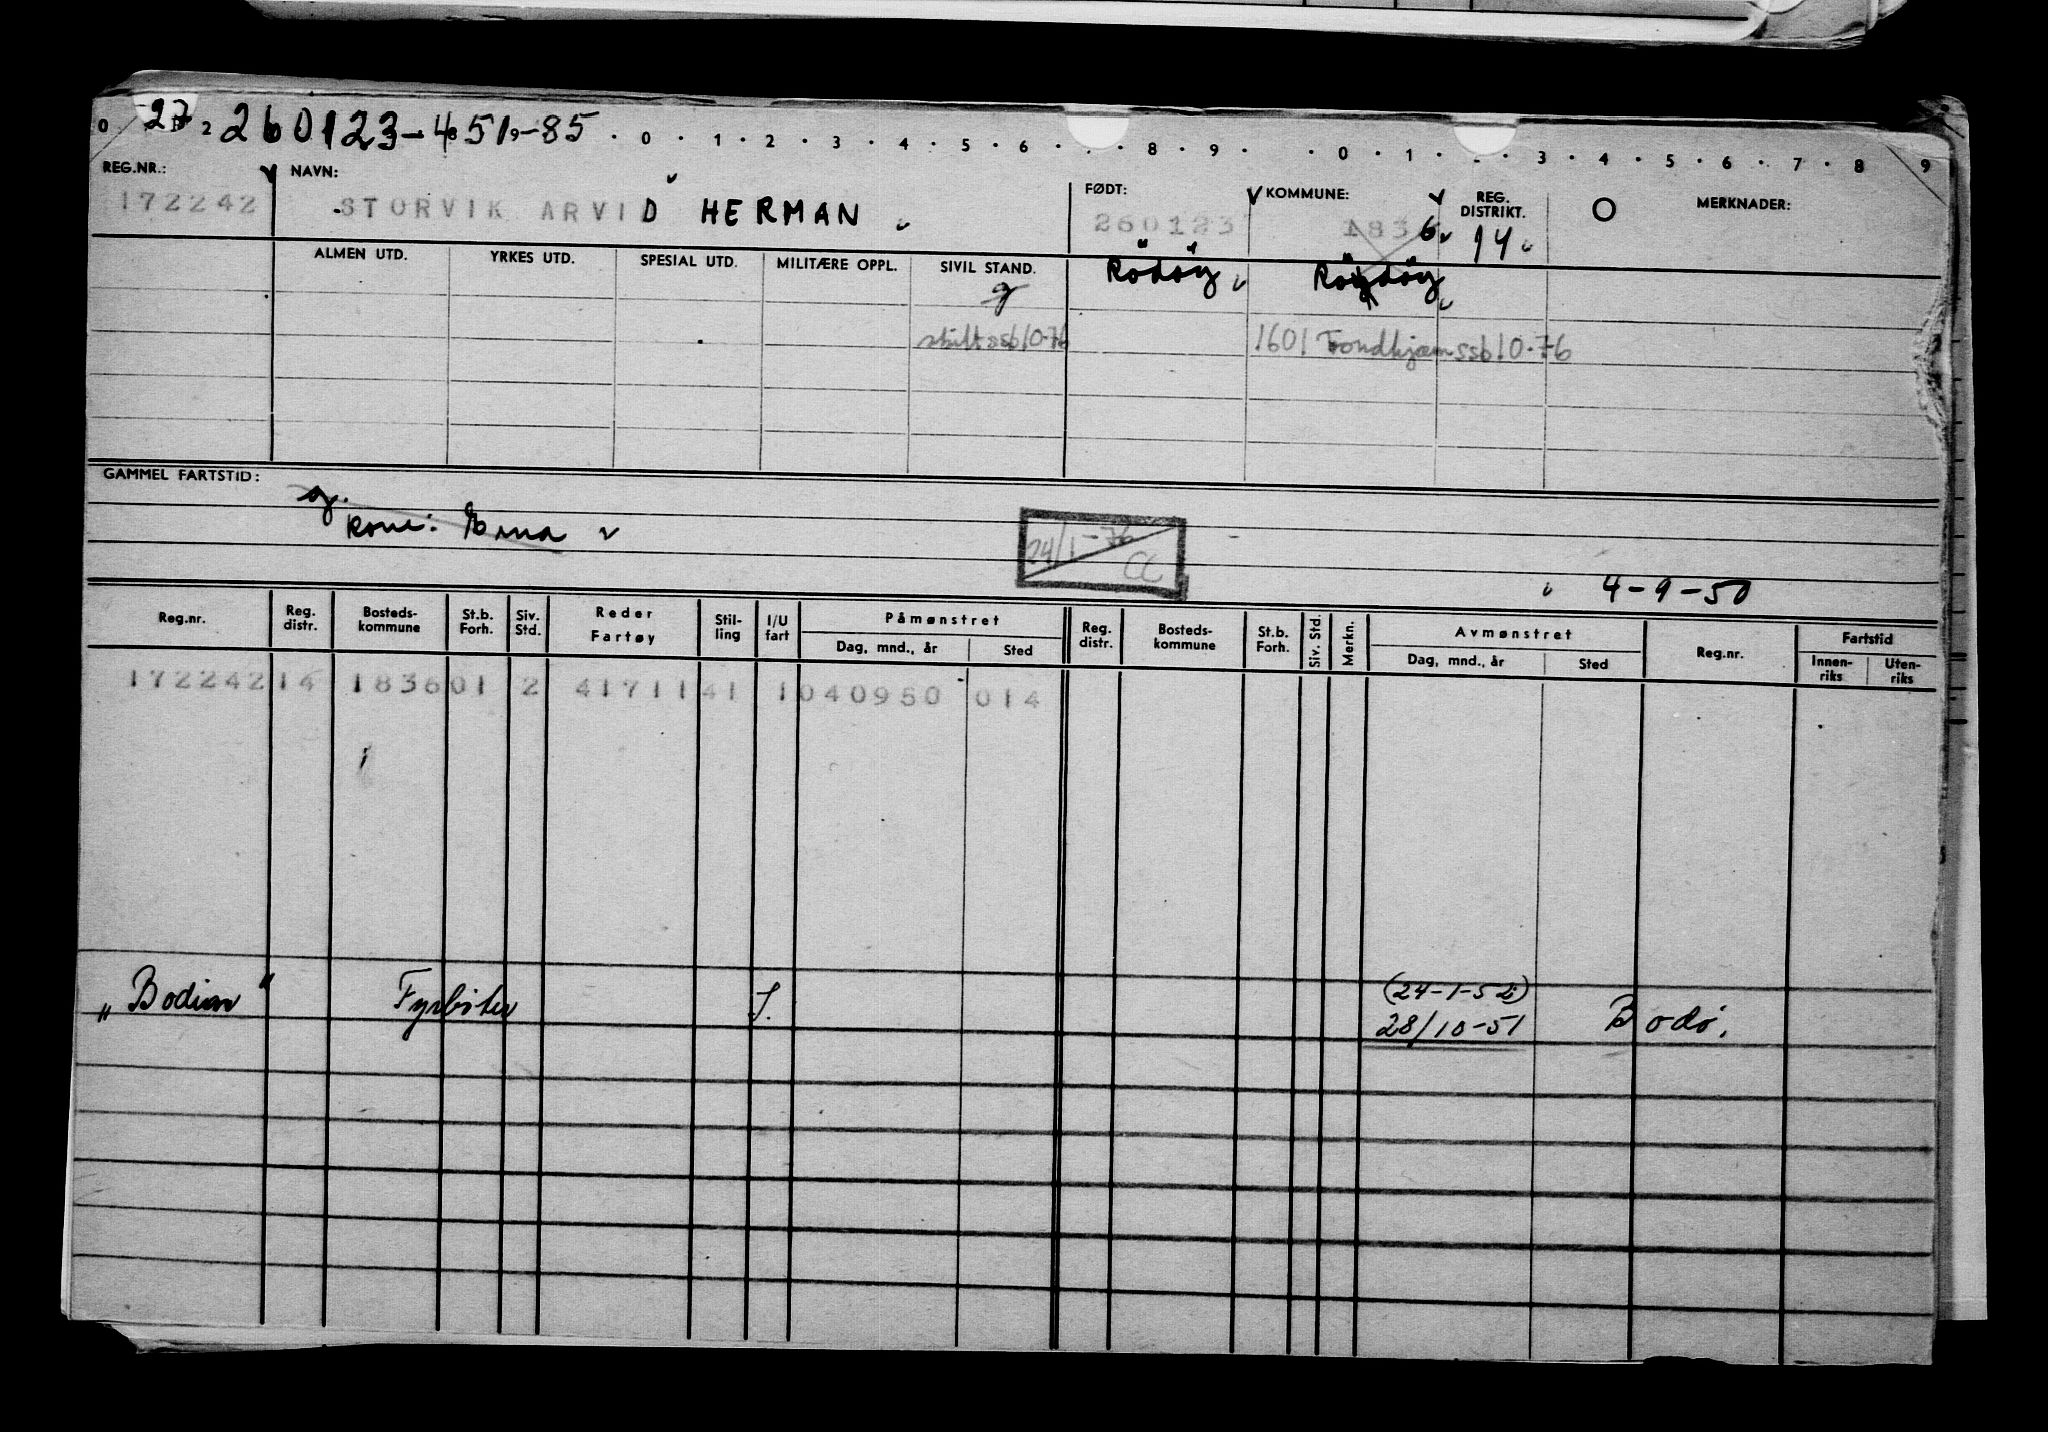 27 260123-451-85
0 2 0 1 2 3 4 5 6 8 9 0 1 3 4 5 6 7 8 9
REG.NR.: NAVN: FØDT: KOMMUNE: REG. DISTRIKT. MERKNADER:
172242 STORVIK ARVID HERMAN 260123 1836 14
ALMEN UTD. YRKES UTD. SPESIAL UTD. MILITÆRE OPPL. SIVIL STAND. Rødøy Rødøy
g
skilt ssb 10-76 1601 Trondhjem ssb 10-76
GAMMEL FARTSTID:
g.
kone: Erna
24/1-76
CC
4-9-50
Reg.nr. Reg. distr. Bosteds-kommune St.b. Forh. Siv. Std. Reder Fartøy Stil-ling I/U fart Påmønstret Reg. distr. Bosteds-kommune St.b. Forh. Siv. Std. Merkn. Avmønstret Reg.nr. Fartstid
Dag, mnd., år Sted Dag, mnd., år Sted Innen-riks Uten-riks
172242 14 1836 01 2 41711 41 1 040950 014
(24-1-52)
"Bodin" Fyrbøter I. 28/10-51 Bodø.